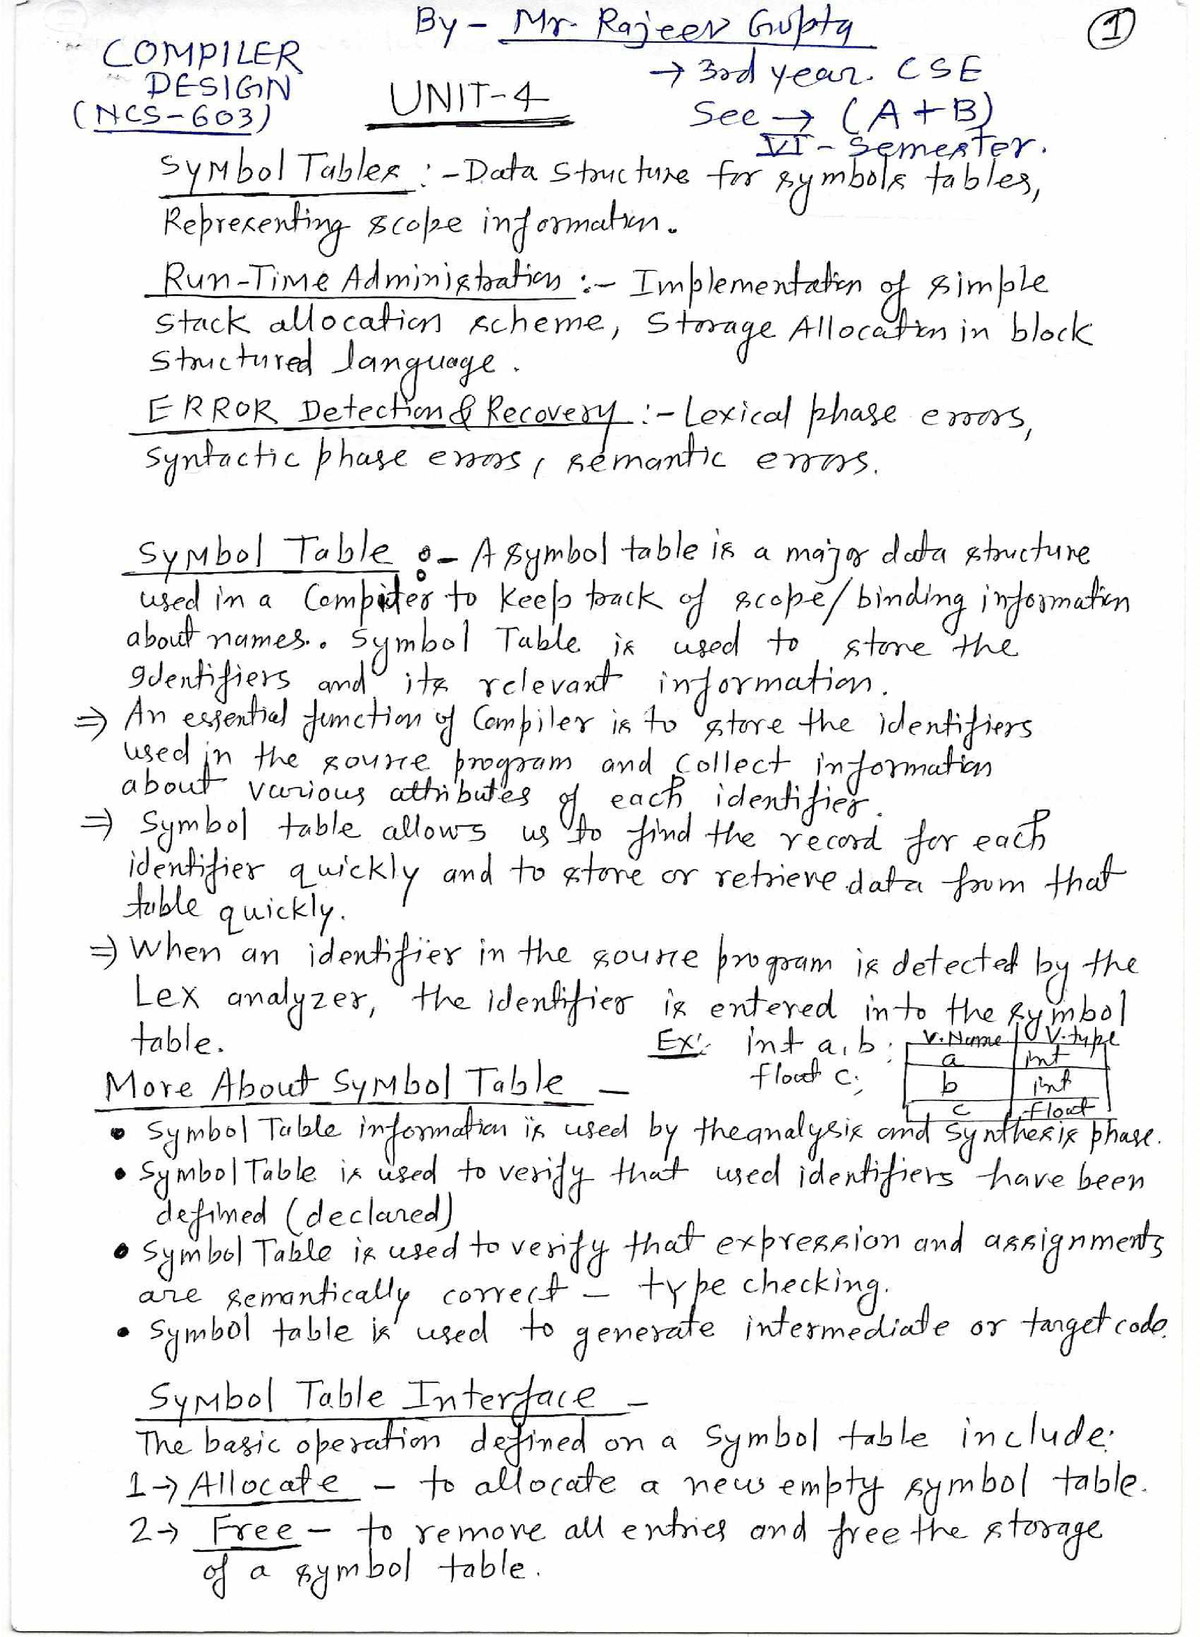 By - Mr. Rajeev Gupta
①
COMPILER
DESIGN
(NCS-603)
UNIT-4
→ 3rd year. CSE
Sec → (A+B)
VI - Semester.
Symbol Tables :- Data Structure for symbols tables,
Representing scope information.
Run-Time Administration :- Implementation of simple
stack allocation scheme, Storage Allocation in block
structured language.
ERROR Detection & Recovery :- Lexical phase errors,
syntactic phase errors, semantic errors.
Symbol Table :- A symbol table is a major data structure
used in a Compiler to keep track of scope/binding information
about names.. Symbol Table is used to store the
Identifiers and its relevant information.
⇒ An essential function of Compiler is to store the identifiers
used in the source program and collect information
about various attributes of each identifier.
⇒ Symbol table allows us to find the record for each
identifier quickly and to store or retrieve data from that
table quickly.
⇒ When an identifier in the source program is detected by the
Lex analyzer, the identifier is entered into the symbol
table.
Ex:- int a, b;
float c;
V.Name V.type
a int
b int
c float
More About Symbol Table -
• Symbol Table information is used by the analysis and Synthesis phase.
• Symbol Table is used to verify that used identifiers have been
defined (declared)
• Symbol Table is used to verify that expression and assignments
are semantically correct - type checking.
• Symbol table is used to generate intermediate or target code.
Symbol Table Interface -
The basic operation defined on a Symbol table include:
1→ Allocate - to allocate a new empty symbol table.
2→ Free - to remove all entries and free the storage
of a symbol table.